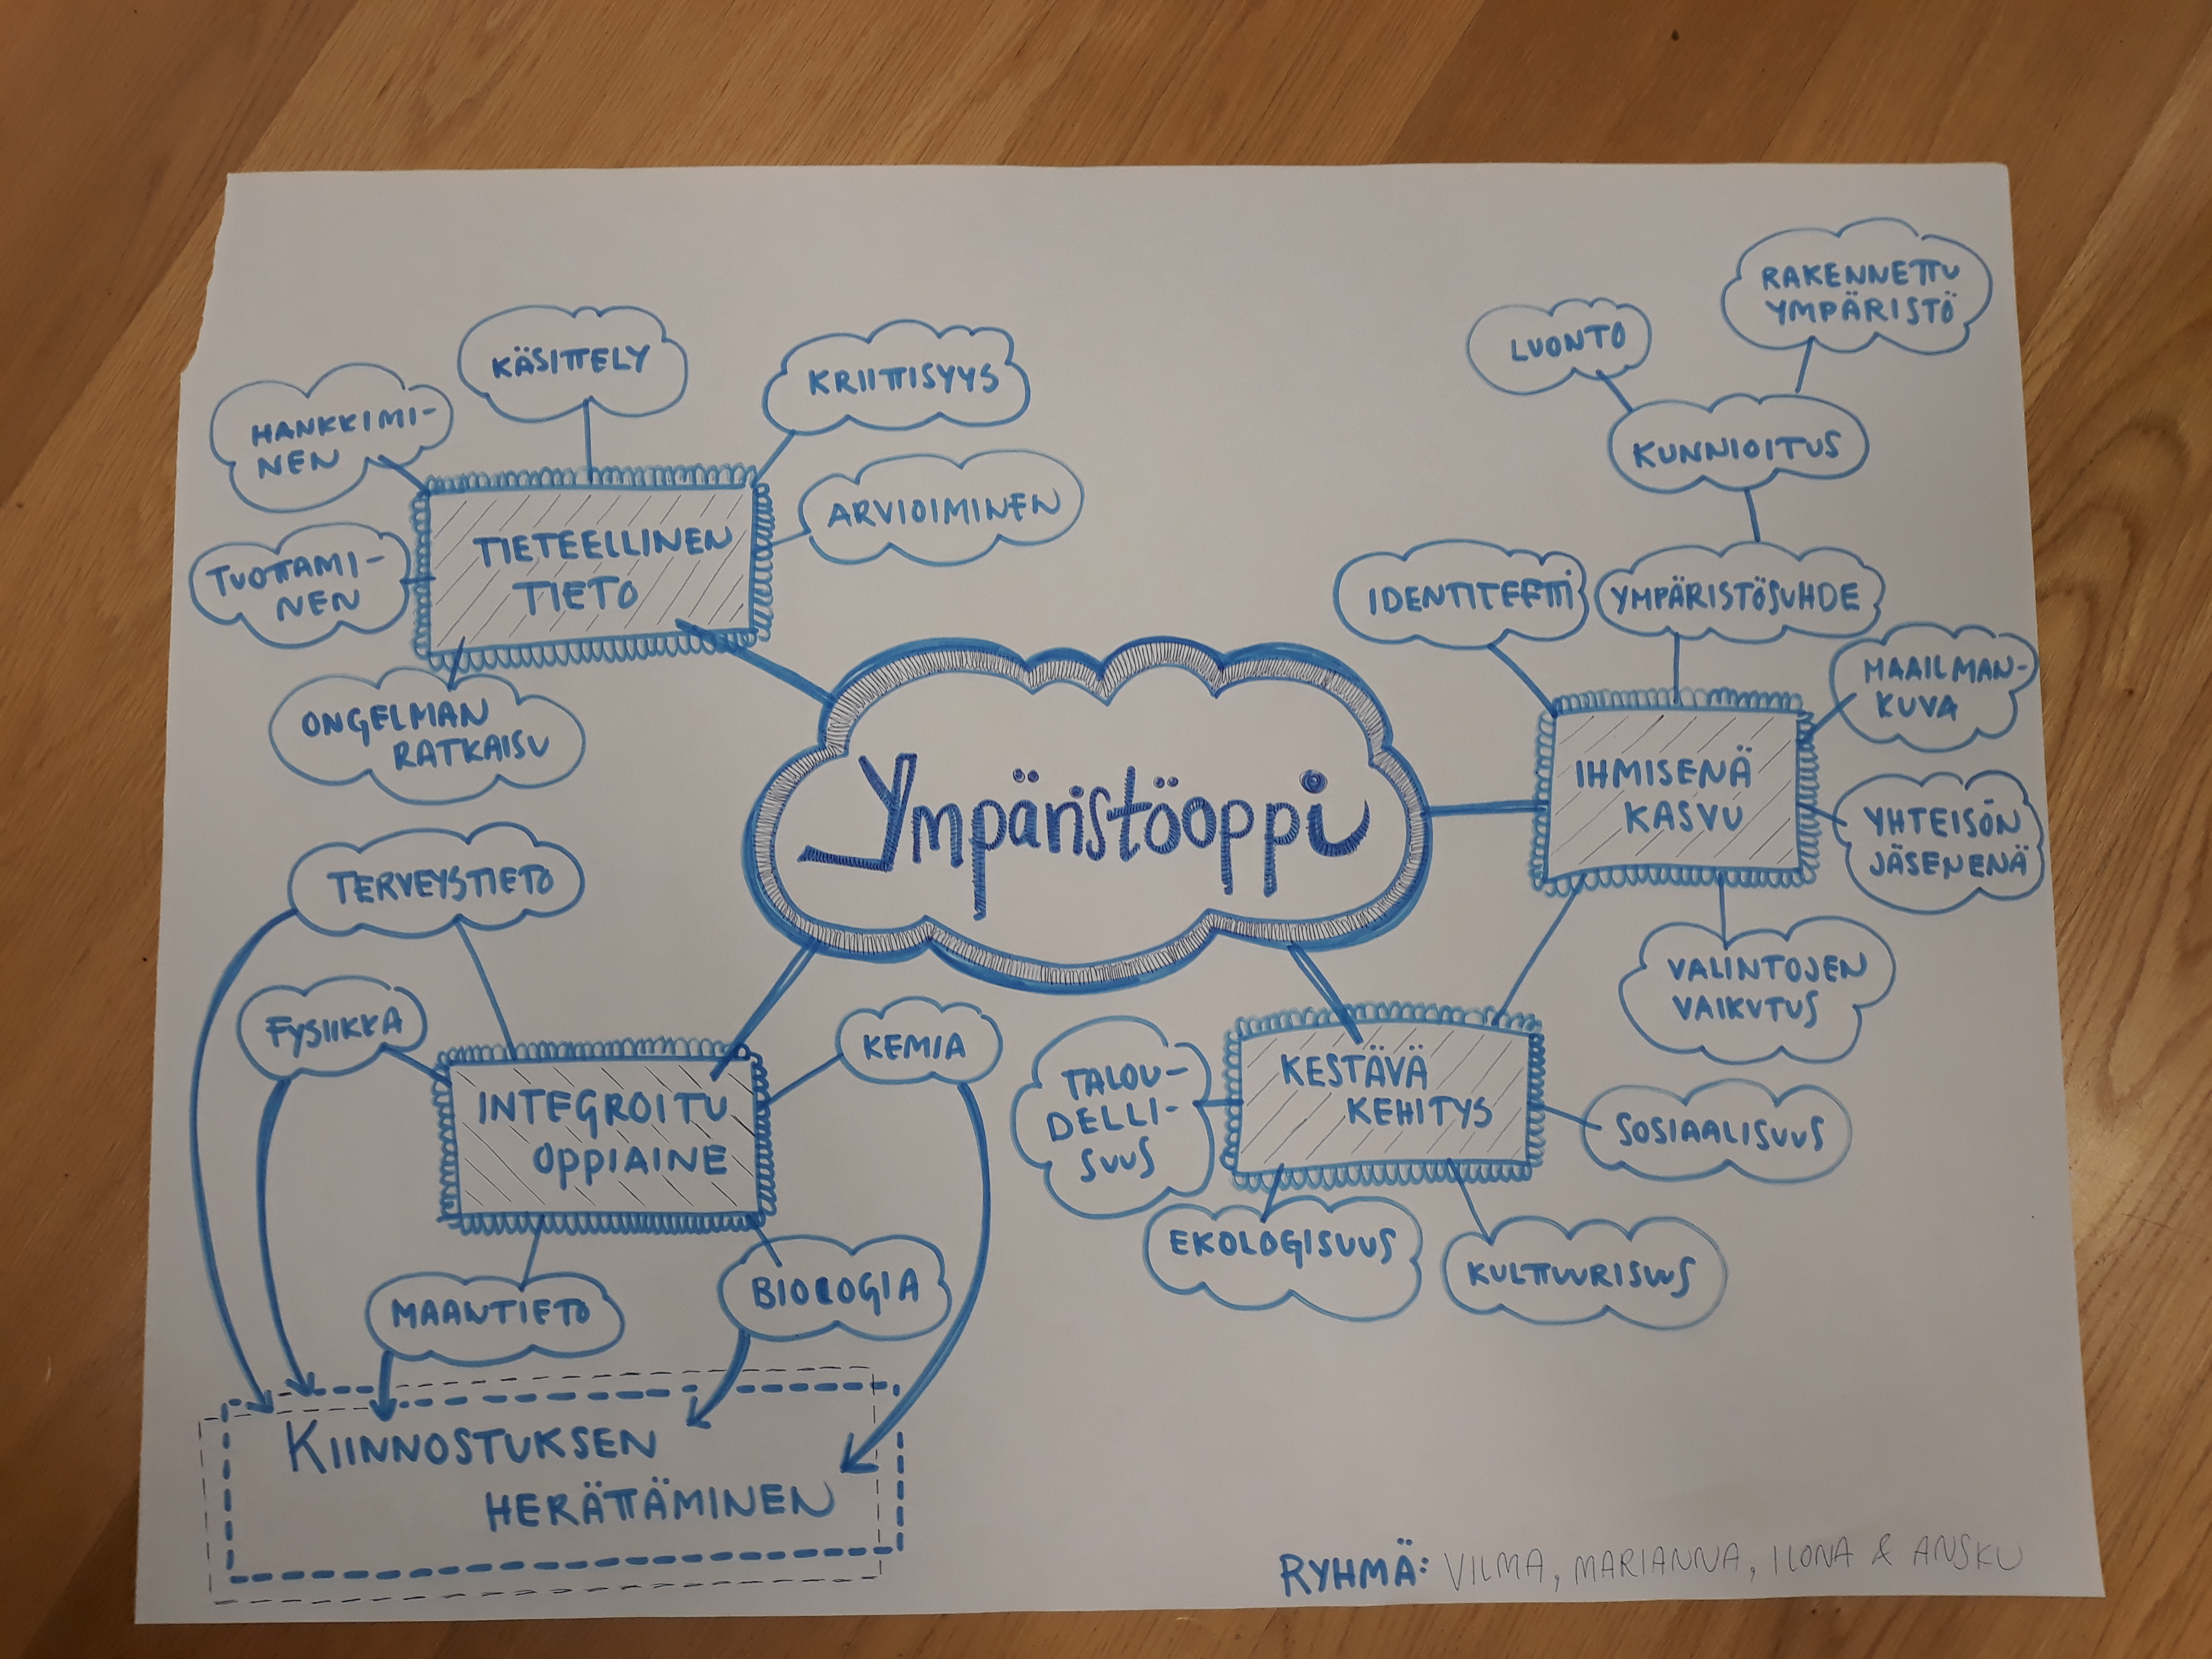 Ympäristöoppi
TIETEELLINEN
TIETO
HANKKIMI-
NEN
KÄSITTELY
KRIITTISYYS
ARVIOIMINEN
TUOTTAMI-
NEN
ONGELMAN
RATKAISU
IHMISENÄ
KASVU
IDENTITEETTI
YMPÄRISTÖSUHDE
KUNNIOITUS
LUONTO
RAKENNETTU
YMPÄRISTÖ
MAAILMAN-
KUVA
YHTEISÖN
JÄSENENÄ
VALINTOJEN
VAIKUTUS
KESTÄVÄ
KEHITYS
TALOU-
DELLI-
SUUS
EKOLOGISUUS
KULTTUURISUUS
SOSIAALISUUS
INTEGROITU
OPPIAINE
TERVEYSTIETO
FYSIIKKA
KEMIA
MAANTIETO
BIOLOGIA
KIINNOSTUKSEN
HERÄTTÄMINEN
RYHMÄ: VILMA, MARIANNA, ILONA & ANSKU